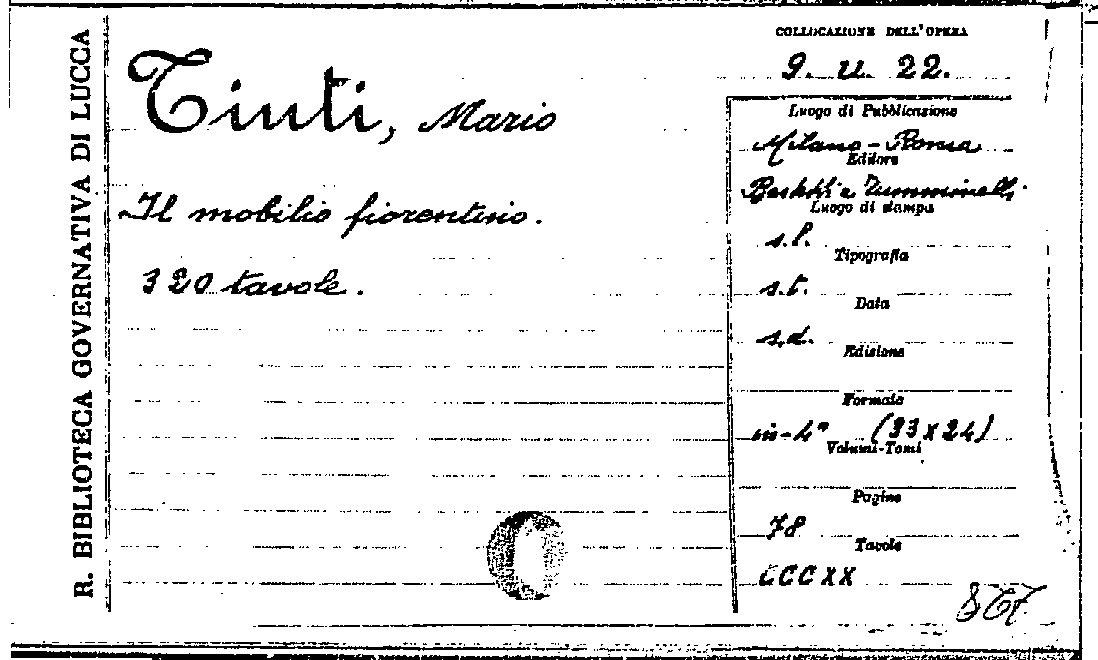 R. BIBLIOTECA GOVERNATIVA DI LUCCA
Tinti, Mario
Il mobilio fiorentino.
320 tavole.
COLLOCAZIONE DELL'OPERA
9. U. 22.
Luogo di Pubblicazione
Milano - Roma
Editore
Bestetti e Tumminelli
Luogo di stampa
s.l.
Tipografia
s.t.
Data
s.d.
Edizione
Formato
in-4° (33 x 24)
Volumi-Tomi
Pagine
78
Tavole
CCCXX